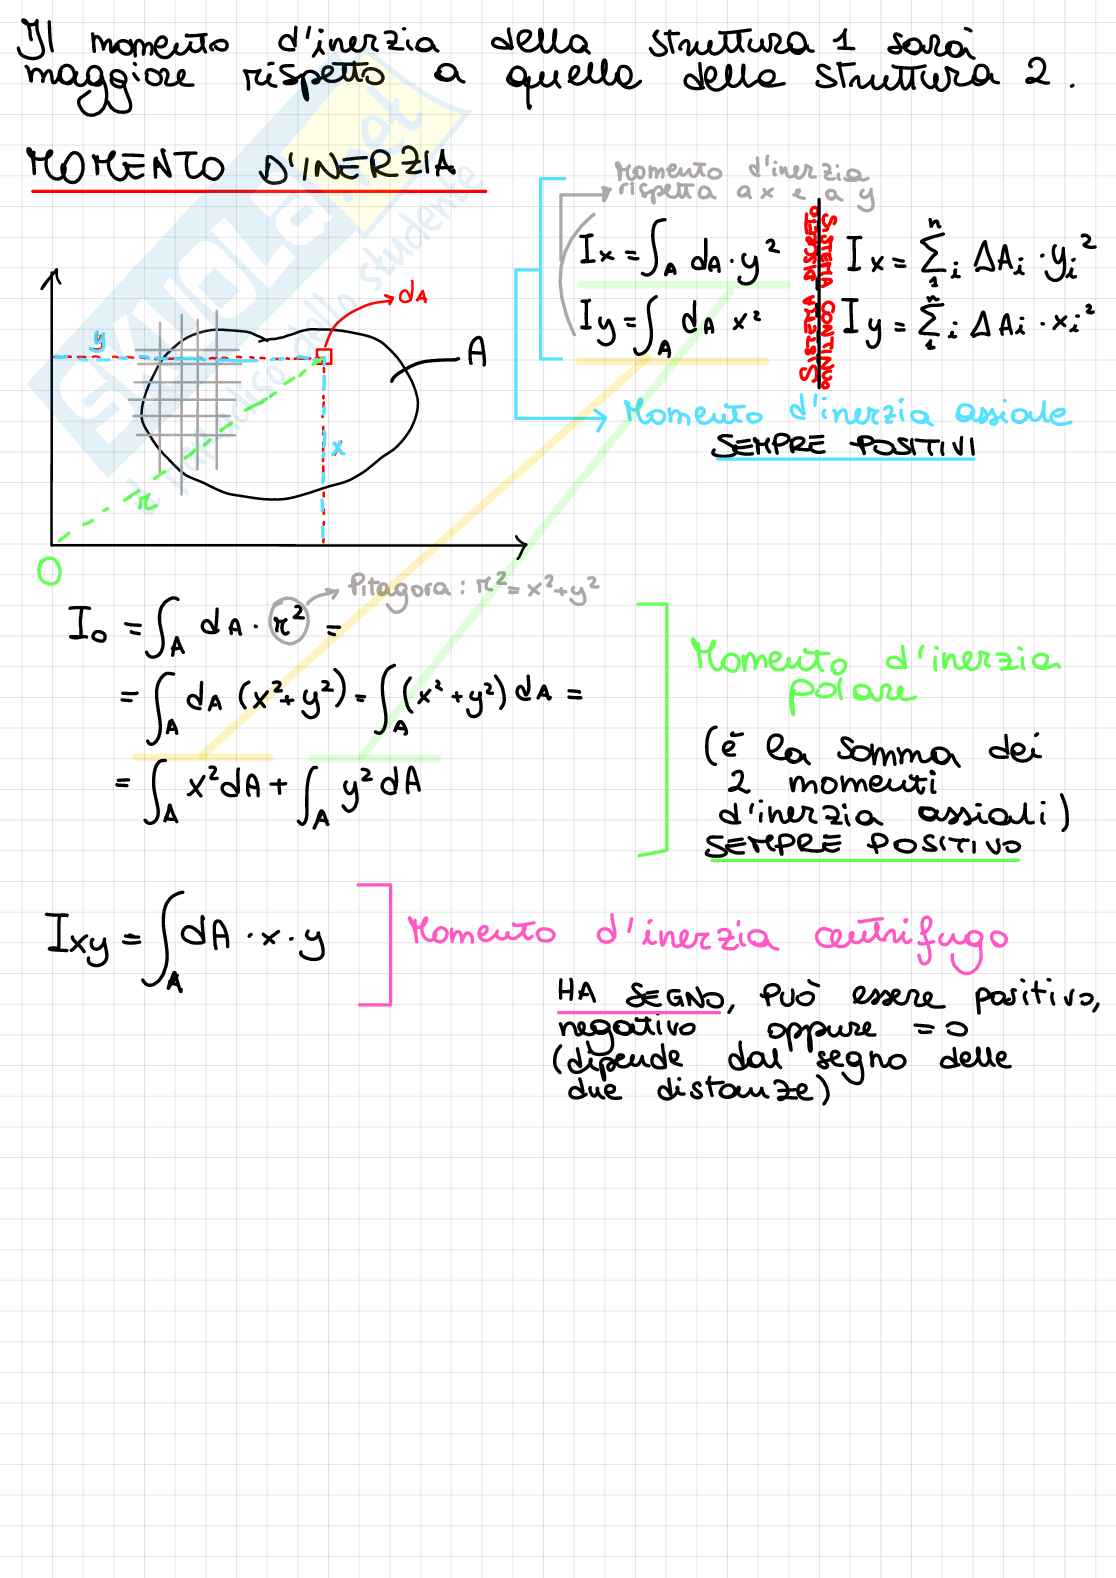 Il momento d'inerzia della struttura 1 sarà
maggiore rispetto a quello della struttura 2.
MOMENTO D'INERZIA
Momento d'inerzia
rispetta a x e a y
Ix = ∫A dA · y²
Iy = ∫A dA x²
SISTEMA CONTINUO
Ix = Σ₁ⁿi ΔAi · yi²
Iy = Σ₁ⁿi ΔAi · xi²
Momento d'inerzia assiale
SEMPRE POSITIVI
dA
y
A
x
r
O
Pitagora: r² = x² + y²
I₀ = ∫A dA · r² =
= ∫A dA (x² + y²) = ∫A (x² + y²) dA =
= ∫A x² dA + ∫A y² dA
Momento d'inerzia
polare
(è la somma dei
2 momenti
d'inerzia assiali)
SEMPRE POSITIVO
Ixy = ∫A dA · x · y
Momento d'inerzia centrifugo
HA SEGNO, PUÒ essere positivo,
negativo oppure = 0
(dipende dal segno delle
due distanze)
SKUOLA.net